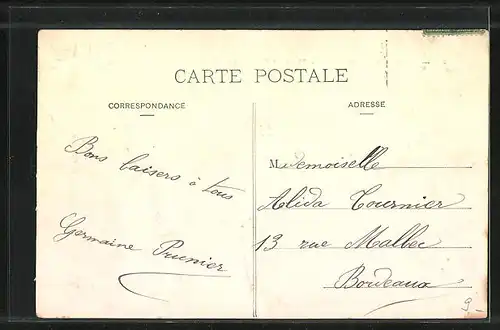 CARTE POSTALE
CORRESPONDANCE
ADRESSE
Bons baisers à tous
Germaine Prunier
Mademoiselle
Alida Tournier
13 rue Malbec
Bordeaux
9-